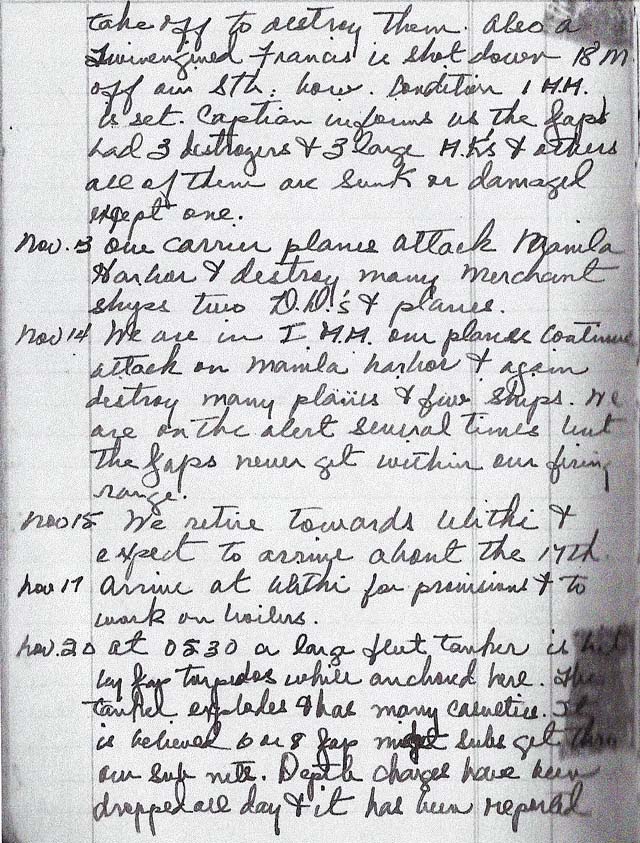 take off to destroy them. Also a
Twinengined Francis is shot down 18 M
off our Sth: bow. Condition 1 M.M.
is set. Captian informs us the Japs
had 3 destroyers & 3 large M.K's & others
all of them are sunk or damaged
exept one.
Nov. 13 our carrier planes attack Manila
Harbor & destroy many Merchant
ships two D.D.'s & planes.
Nov 14 We are in I M.M. our planes continue
attack on Manila harbor & again
destroy many planes & five ships. We
are on the alert several times but
the Japs never get within our firing
range.
Nov 15 We retire towards Ulithi &
expect to arrive about the 17th.
Nov 17 Arrive at Ulithi for provisions & to
work on boilers.
Nov. 20 at 0530 a large fleet tanker is hit
by Jap torpedos while anchored here. The
tanker explodes & has many casueties. It
is believed 6 or 8 Jap midget subs get thru
our sub nets. Depth charges have been
dropped all day & it has been reported